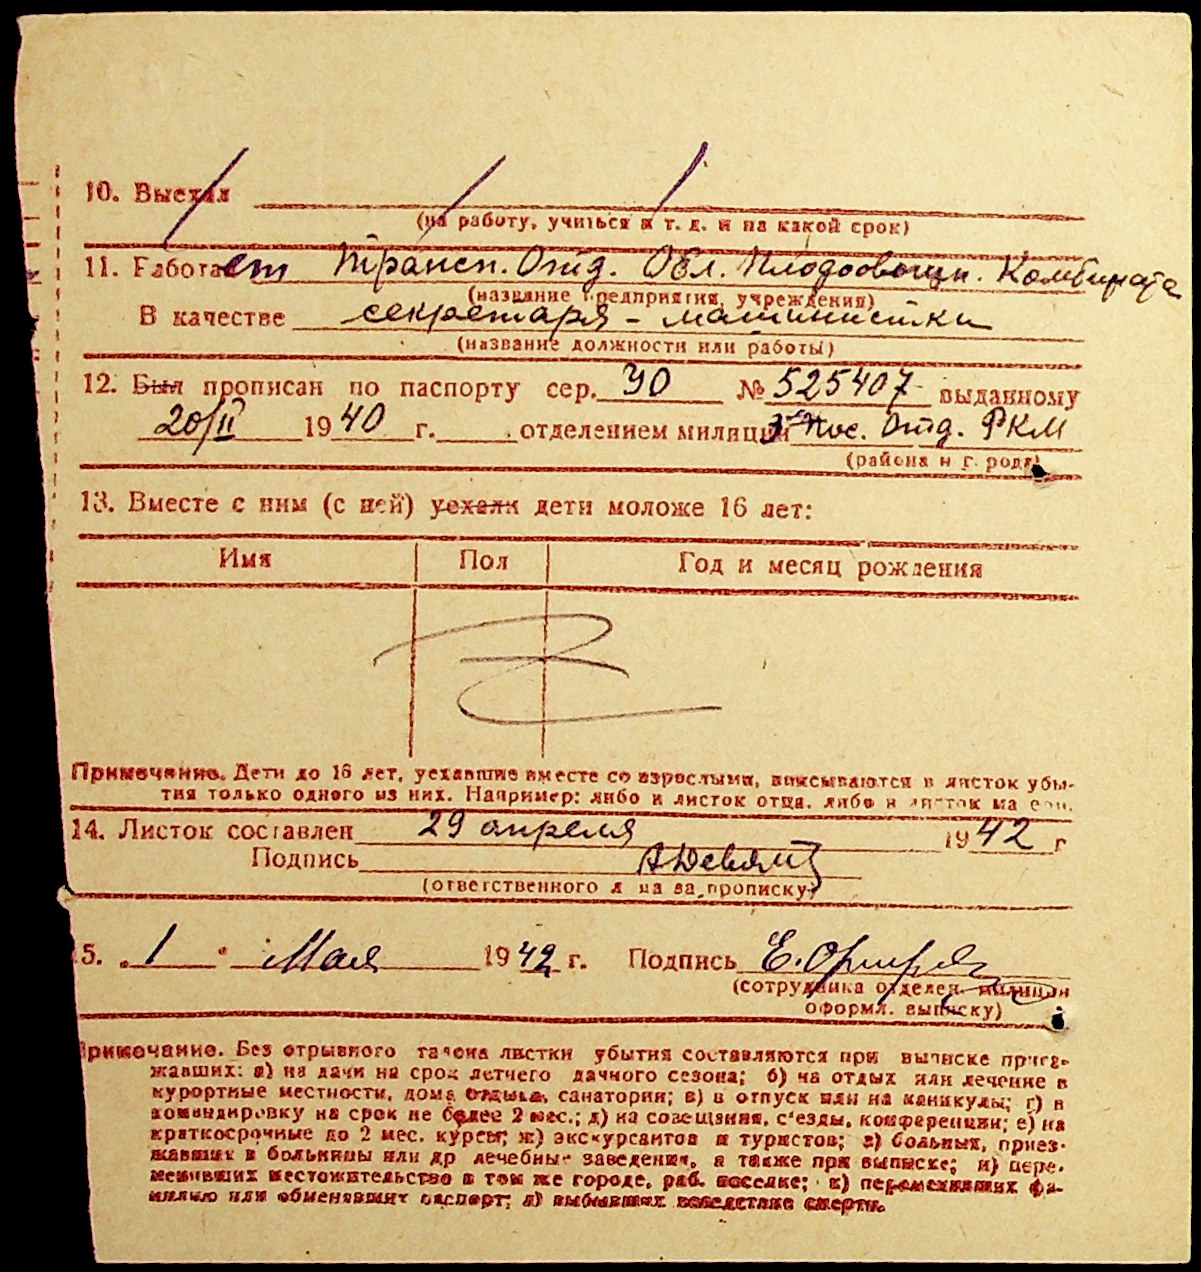 10. Выехал
(на работу, учиться и т. д. и на какой срок)
11. Работает Трансп. Отд. Обл. Плодоовощн. Комбината
(название предприятия, учреждения)
В качестве секретаря - машинистки
(название должности или работы)
12. Был прописан по паспорту сер. УО № 525407 выданному
20/II 1940 г. отделением милиции 3 Пос. Отд. РКМ
(района и города)
13. Вместе с ним (с ней) уехали дети моложе 16 лет:
Имя Пол Год и месяц рождения
Z
Примечание. Дети до 16 лет, уехавшие вместе со взрослыми, вписываются в листок убы-
тия только одного из них. Например: либо в листок отца, либо в листок матери.
14. Листок составлен 29 апреля 1942 г
Подпись
(ответственного лица за прописку)
15. „1" Мая 1942 г. Подпись Е.
(сотрудника отделен. милиции
оформл. выписку)
Примечание. Без отрывного талона листки убытия составляются при выписке приез-
жавших: а) на дачи на срок летнего дачного сезона; б) на отдых или лечение в
курортные местности, дома отдыха, санатории; в) в отпуск или на каникулы; г) в
командировку на срок не более 2 мес.; д) на совещания, с'езды, конференции; е) на
краткосрочные до 2 мес. курсы; ж) экскурсантов и туристов; з) больных, приез-
жавших в больницы или др лечебные заведения, а также при выписке; и) пере-
менивших местожительство в том же городе, раб. поселке; к) переменивших фа-
милию или обменявших паспорт; л) выбывших вследствие смерти.